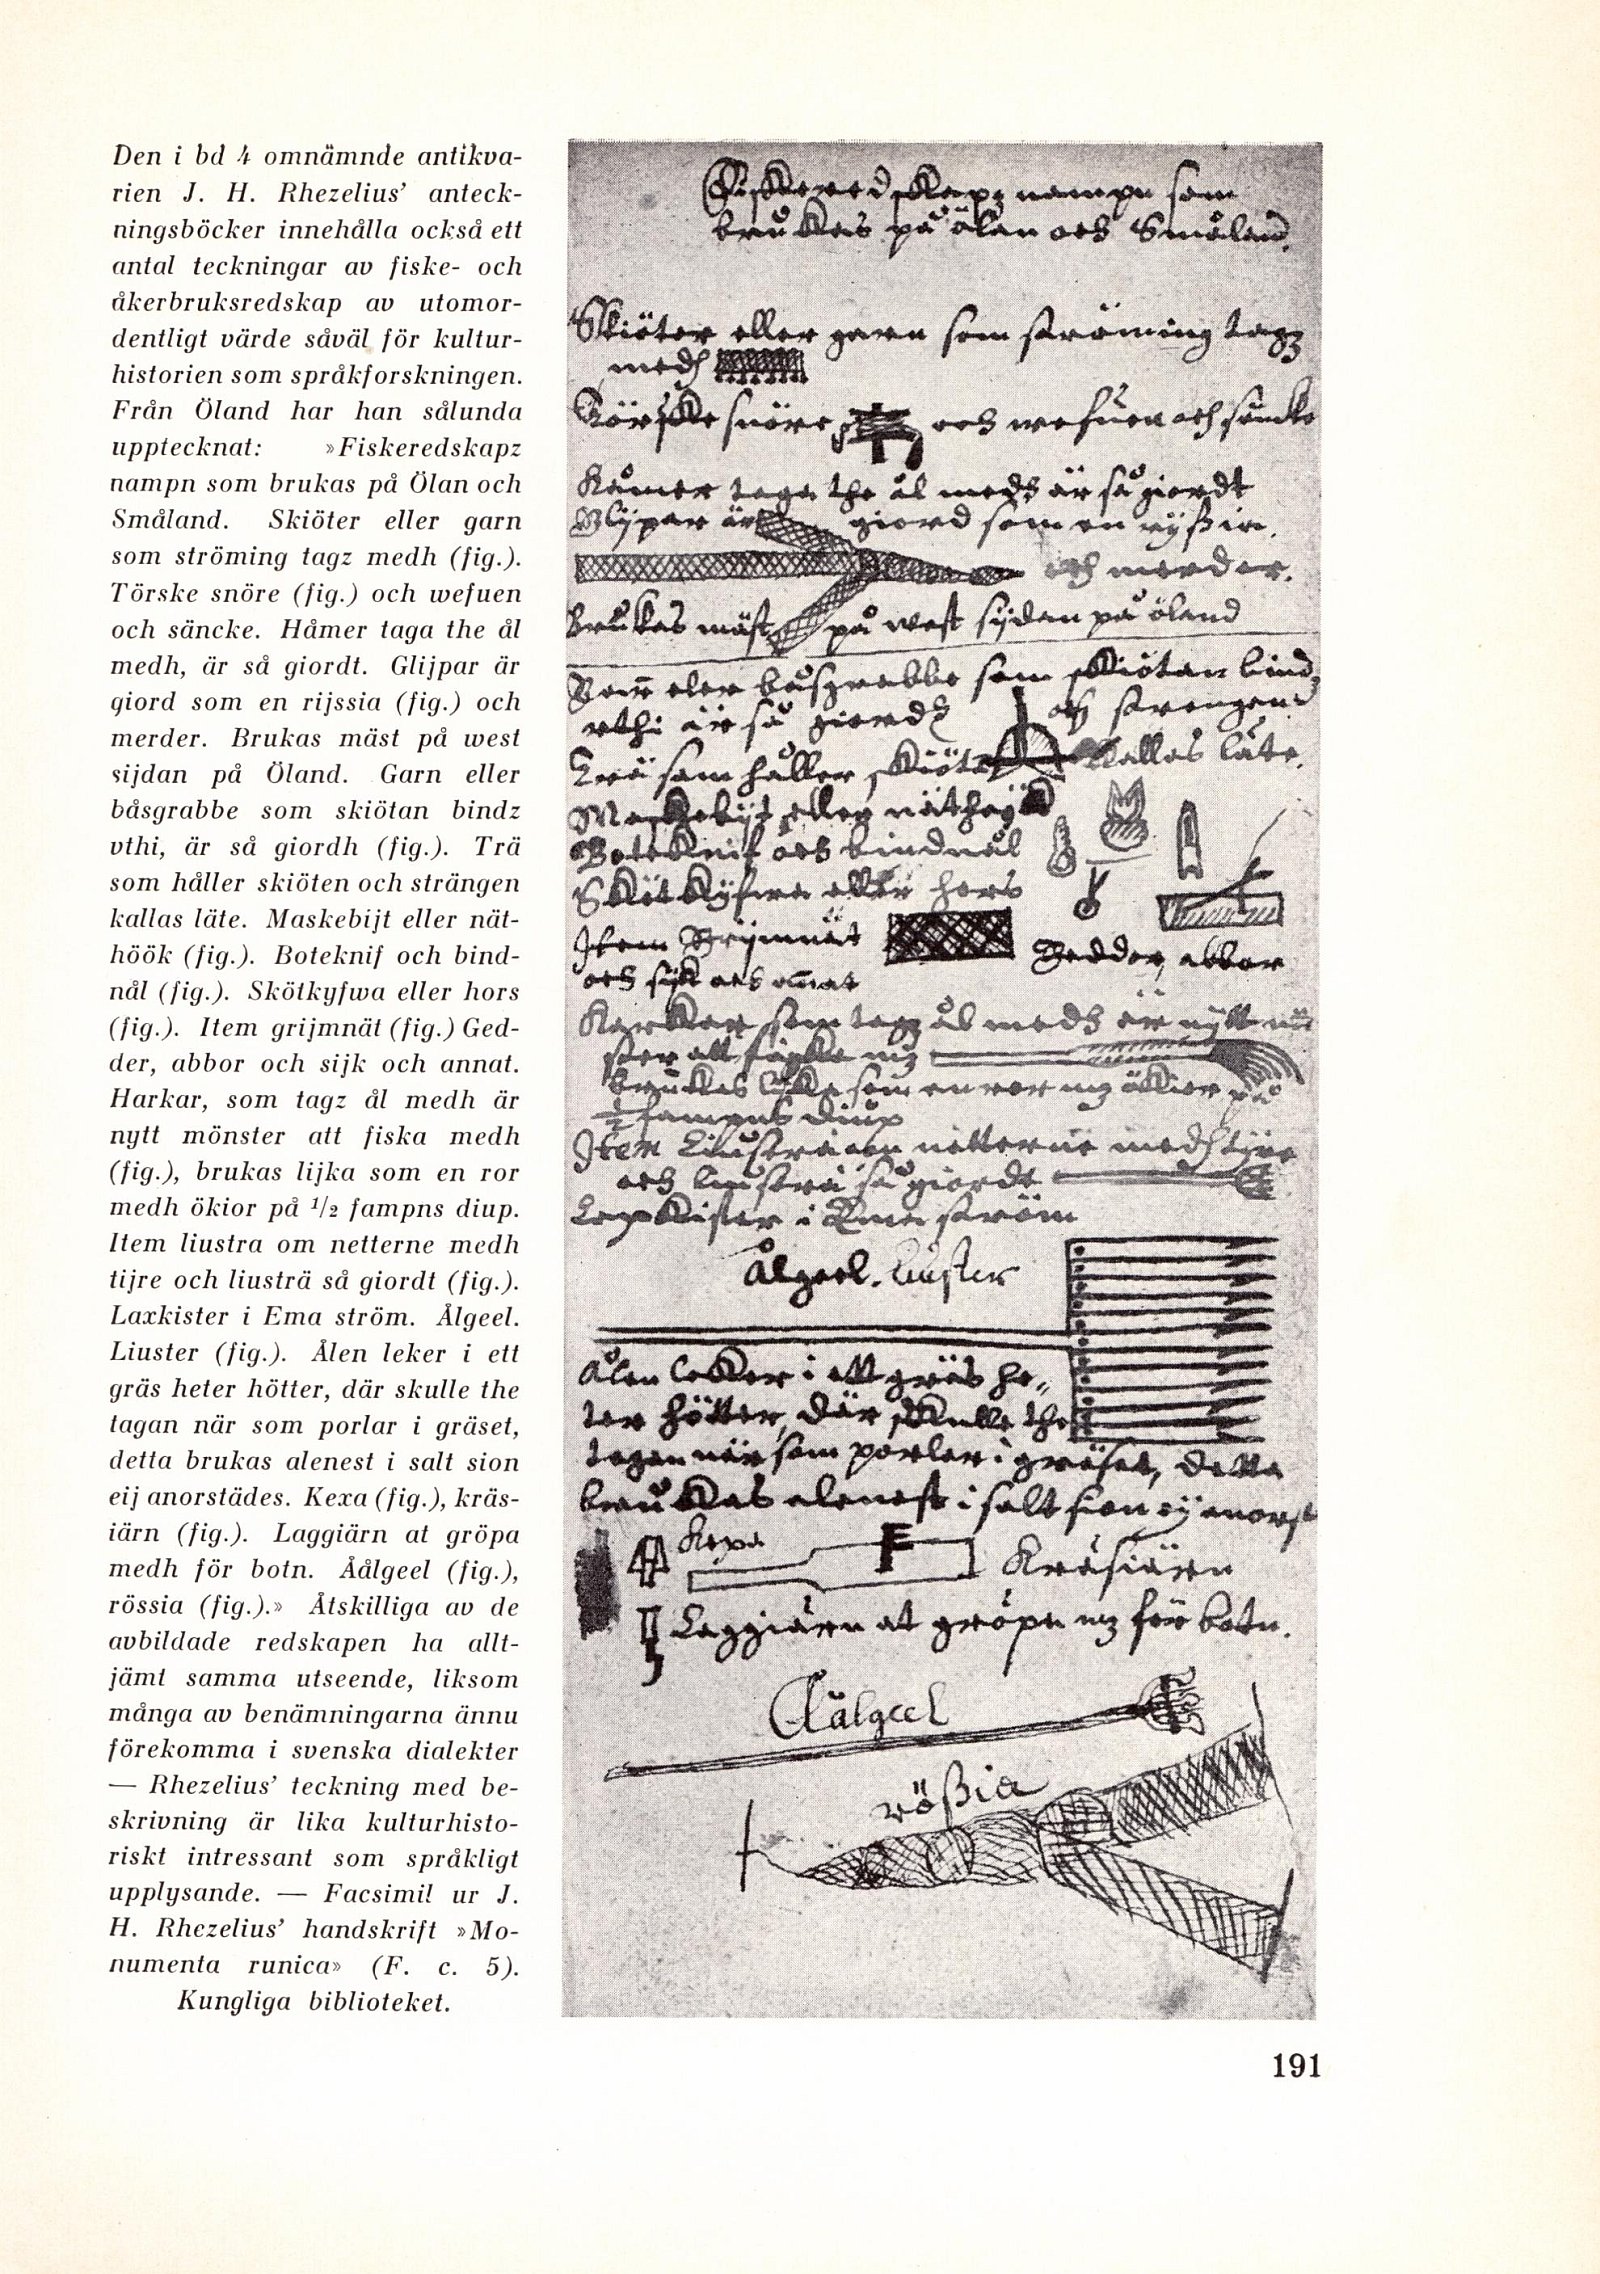 Den i bd 4 omnämnde antikva-
rien J. H. Rhezelius’ anteck-
ningsböcker innehålla också ett
antal teckningar av fiske- och
åkerbruksredskap av utomor-
dentligt värde såväl för kultur-
historien som språkforskningen.
Från Öland har han sålunda
upptecknat: »Fiskeredskapz
nampn som brukas på Ölan och
Småland. Skiöter eller garn
som ströming tagz medh (fig.).
Törske snöre (fig.) och wefuen
och säncke. Håmer taga the ål
medh, är så giordt. Glijpar är
giord som en rijssia (fig.) och
merder. Brukas mäst på west
sijdan på Öland. Garn eller
båsgrabbe som skiötan bindz
vthi, är så giordh (fig.). Trä
som håller skiöten och strängen
kallas läte. Maskebijt eller nät-
höök (fig.). Boteknif och bind-
nål (fig.). Skötkyfwa eller hors
(fig.). Item grijmnät (fig.) Ged-
der, abbor och sijk och annat.
Harkar, som tagz ål medh är
nytt mönster att fiska medh
(fig.), brukas lijka som en ror
medh ökior på 1/2 fampns diup.
Item liustra om netterne medh
tijre och liusträ så giordt (fig.).
Laxkister i Ema ström. Ålgeel.
Liuster (fig.). Ålen leker i ett
gräs heter hötter, där skulle the
tagan när som porlar i gräset,
detta brukas alenest i salt sion
eij anorstädes. Kexa (fig.), kräs-
iärn (fig.). Laggiärn at gröpa
medh för botn. Åålgeel (fig.),
rössia (fig.).» Åtskilliga av de
avbildade redskapen ha allt-
jämt samma utseende, liksom
många av benämningarna ännu
förekomma i svenska dialekter
— Rhezelius’ teckning med be-
skrivning är lika kulturhisto-
riskt intressant som språkligt
upplysande. — Facsimil ur J.
H. Rhezelius’ handskrift »Mo-
numenta runica» (F. c. 5).
Kungliga biblioteket.
Fiskeredskapz nampn som
brukas på ölan och Småland.
Skiöter eller garn som ströming tagz
medh
Törske snöre och wefuen och säncke
Håmer taga the ål medh är så giordt
Glijpar är giord som en rijßia
och merder.
Brukas mäst på west sijdan på öland
eler båsgrabbe som skiötan bindz
vthi är så giordh och strengen
Trä som håller skiöten kallas läte.
Maskebijt eller näthöök
Boteknif och bindnål
Skötkyfwa eller hors
Item Grijmnät Gedder, abbor
och sijk och annat
Harkar som tagz ål medh är nytt
brukas lijka som en ror mz ökior på
1/2 fampns diup
Item Liustra om netterne medh tijre
och liusträ så giordt
Laxkister i Ema ström
Ålgeel. Liuster
Ålen leker i ett gräs he„
ter hötter, där skulle the
tagan när som porlar i gräset, detta
brukas alenest i salt sion eij anorst
Kexa Kräsiärn
Laggiärn at gröpa mz för botn.
Åålgeel
rößia
191